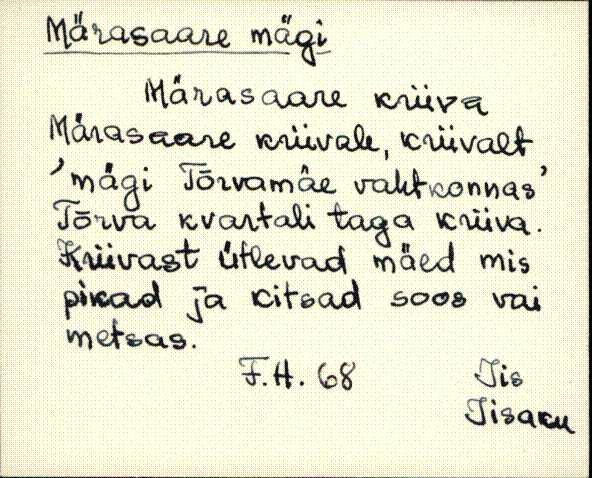 Märasaare mägi
Märasaare kriiva
Märasaare kriivale, kriivalt
'mägi Tõrvamäe vahtkonnas'
Tõrva kvartali taga kriiva.
Kriivast ütlevad mäed mis
pikad ja kitsad soos vai
metsas.
F.H. 68 Iis
Iisaku